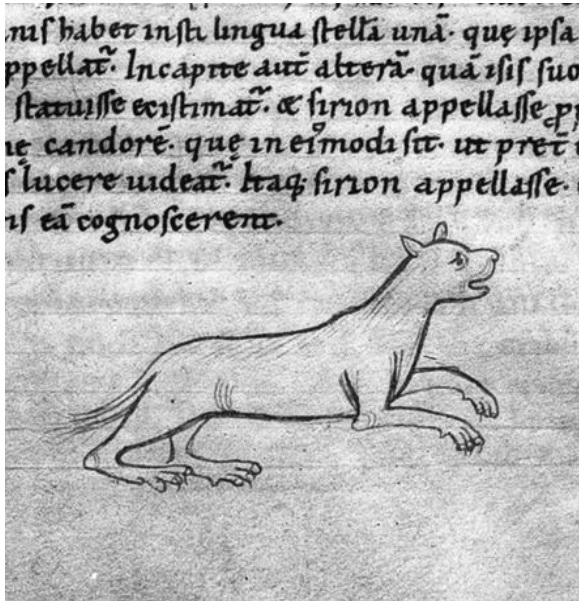 nis habet insti lingua stellā unā· quę ipsa
ppellat᷑. Incapite aut̄ alterā· quā isis suo
statuisse ecistimat᷑. & sirion appellasse ꝓp
ę candorē· quę in eiꝰmodi sit· ut pret
s lucere uideat᷑. Itaq; sirion appellasse·
is eā cognoscerent·